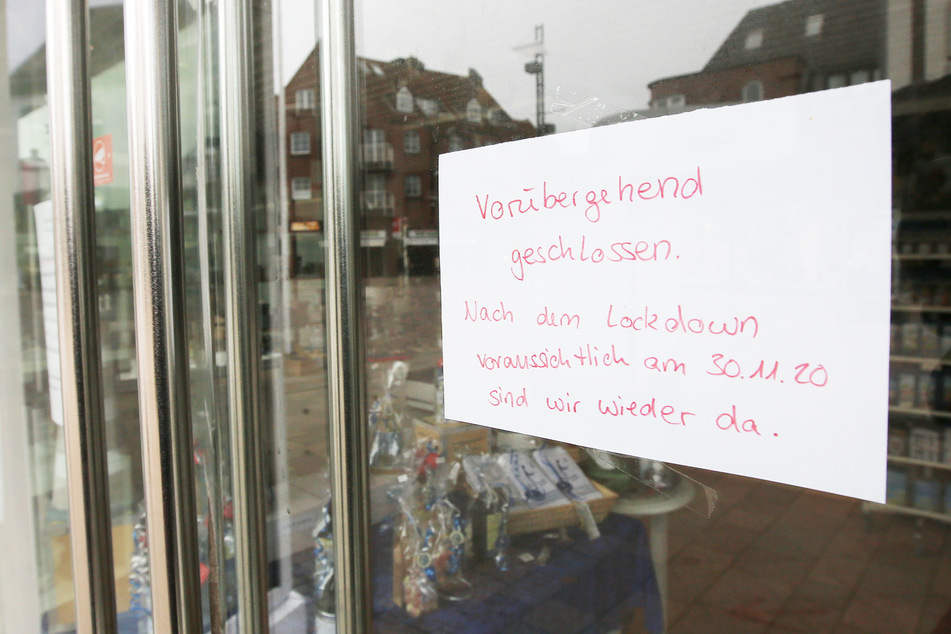 Vorübergehend
geschlossen.
Nach dem Lockdown
voraussichtlich am 30.11.20
sind wir wieder da.